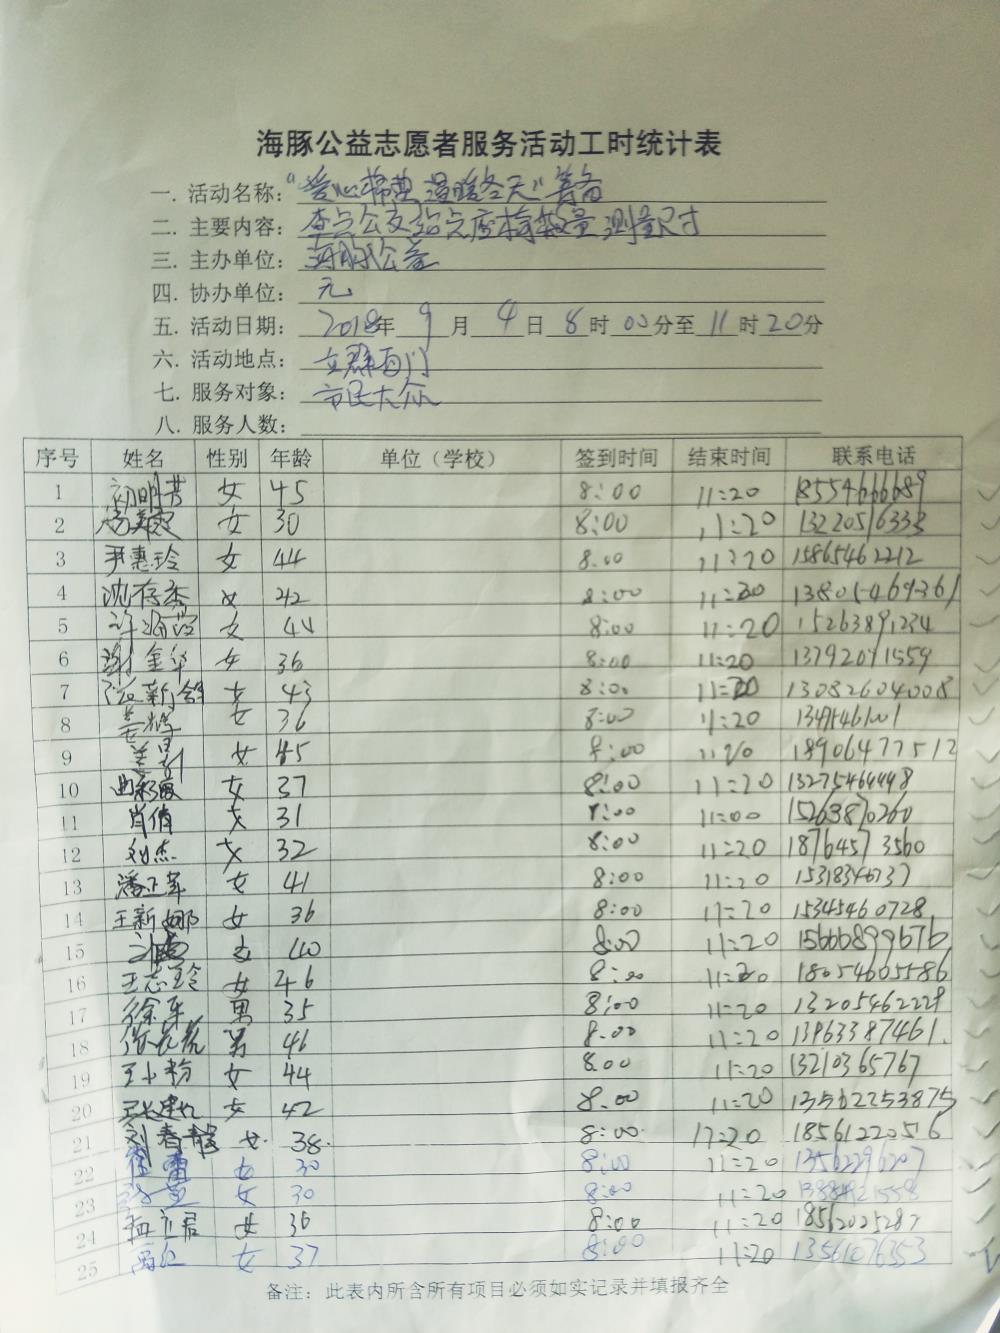 海豚公益志愿者服务活动工时统计表
一. 活动名称："爱心棉垫 温暖冬天"筹备
二. 主要内容：查点公交站点座椅数量 测量尺寸
三. 主办单位：海豚公益
四. 协办单位：无
五. 活动日期：2018年 9 月 4 日 8 时 00分至 11 时 20分
六. 活动地点：立群西门
七. 服务对象：市民大众
八. 服务人数：
序号 姓名 性别 年龄 单位（学校） 签到时间 结束时间 联系电话
1 初明芳 女 45 8:00 11:20 18554666689
2 女 30 8:00 11:20 13220516333
3 尹惠玲 女 44 8:00 11:20 15865462212
4 沈存杰 女 42 8:00 11:20 13805469361
5 女 44 8:00 11:20 15263891234
6 谢金华 女 36 8:00 11:20 13792091559
7 女 43 8:00 11:20 13082604008
8 女 36 8:00 11:20
9 女 45 8:00 11:20 18906477512
10 女 37 8:00 11:20 13275464448
11 肖俏 女 31 8:00 11:00 15263870260
12 刘杰 女 32 8:00 11:20 18764573560
13 潘正苹 女 41 8:00 11:20 15318346737
14 王新娜 女 36 8:00 11:20 15345460728
15 女 40 8:00 11:20 15666899676
16 王志玲 女 46 8:00 11:20 18054605586
17 徐军 男 35 8:00 11:20 13205462229
18 男 46 8:00 11:20 13963387461
19 王小粉 女 44 8:00 11:20 13210365767
20 女 42 8:00 11:20 13562253875
21 刘春静 女 38 8:00 11:20 18561220516
22 崔雷 女 30 8:00 11:20 13562296207
23 女 30 8:00 11:20
24 女 36 8:00 11:20 18562025287
25 女 37 8:00 11:20 13561076353
备注：此表内所含所有项目必须如实记录并填报齐全